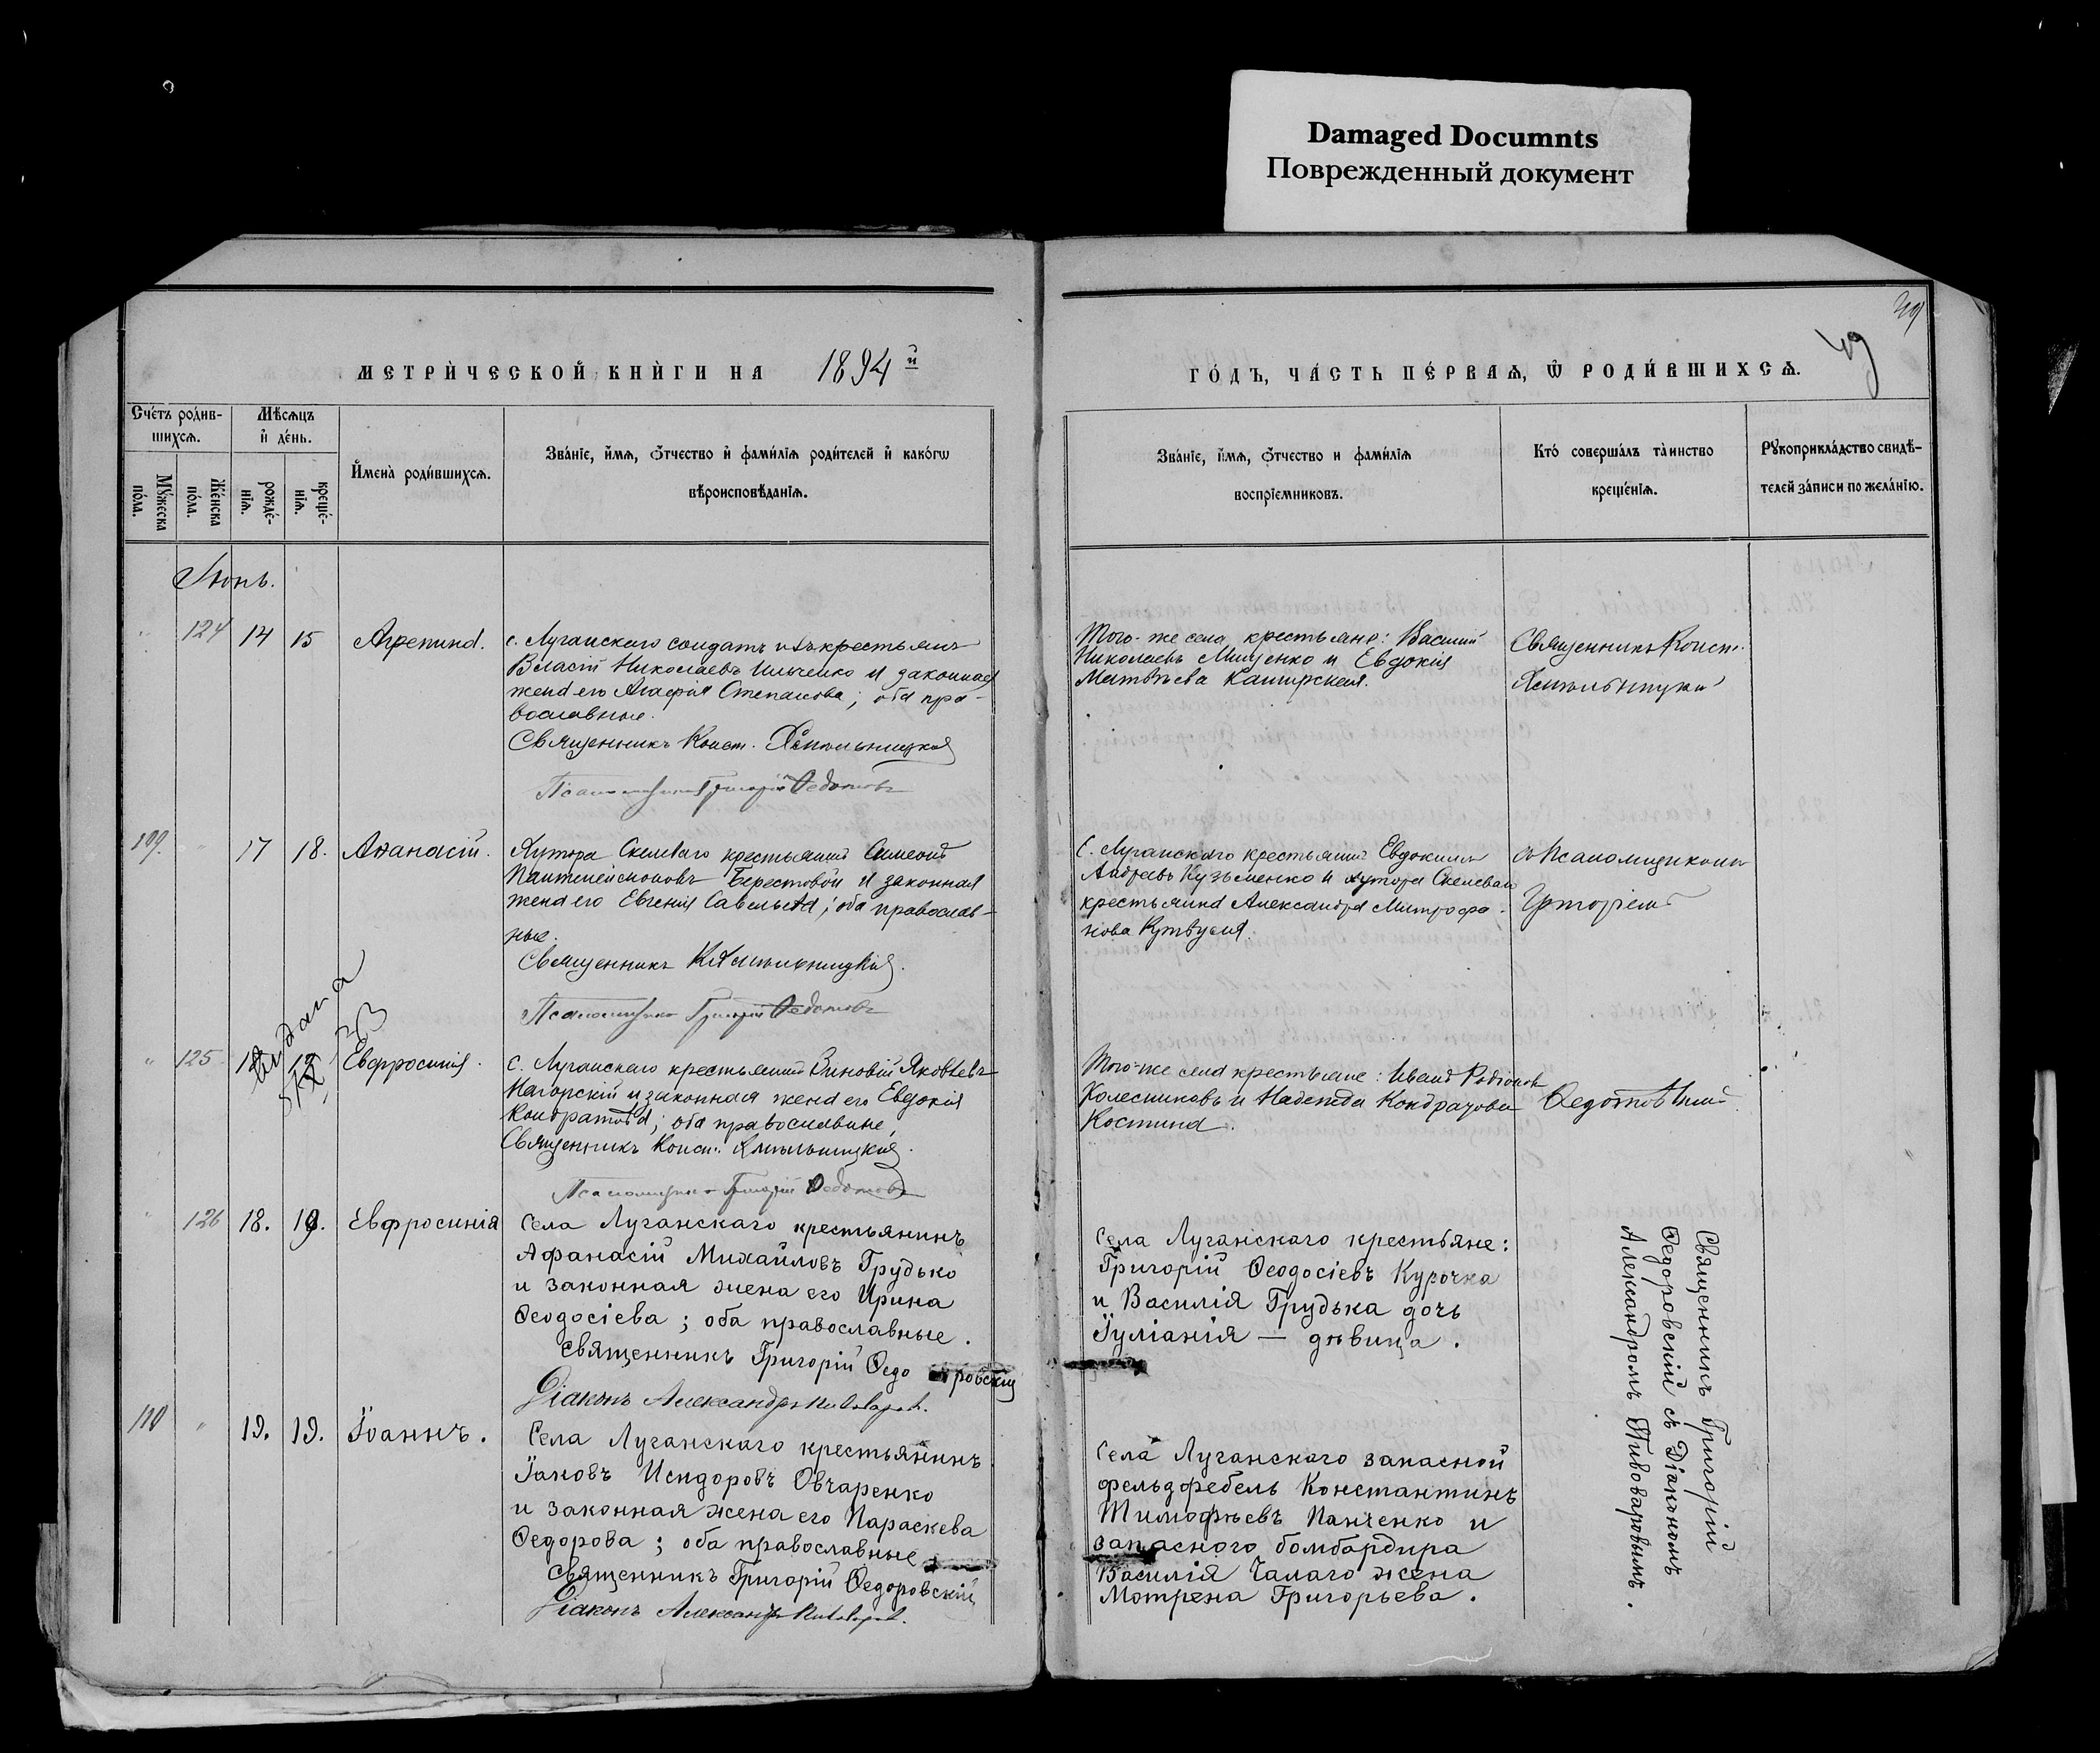 Damaged Documnts
Поврежденный документ
МЕТРИ́ЧЕСКОЙ КНИ́ГИ НА 1894й
ГО́ДЪ, ЧА́СТЬ ПЕ́РВАѦ, Ѿ РОДИ́ВШИХСѦ.
49
Сче́тъ роди́в-
шихсѧ.
Мѣсѧцъ
и҆ де́нь.
Мꙋ́жеска
по́ла.
Же́нска
по́ла.
рожде́-
нїѧ.
креще́-
нїѧ.
И҆мена̀ роди́вшихсѧ.
Зва́нїе, и҆́мѧ, ѻ҆́тчество и҆ фами́лїѧ роди́телей и҆ како́гѡ
вѣроисповѣ́данїѧ.
Зва́нїе, и҆́мѧ, ѻ҆́тчество и фами́лїѧ
воспрїе́мниковъ.
Кто́ соверша́лъ та̀инство
креще́нїѧ.
Рꙋкоприкла́дство свидѣ́-
телей за́писи по жела́нїю.
Іюнь.
124 14 15 Агрепина.
с. Луганскаго солдатъ изъ крестьянъ
Власій Николаевъ Ильченко и законная
жена его Агафія Степанова; оба пра-
вославные.
Священникъ Конст. Хмѣльницкій
Псаломщикъ Григорій Ѳедотовъ
Того-же села крестьяне: Василій
Николаевъ Мищенко и Евдокія
Матвѣева Каширская.
Священникъ Конст.
Хмѣльницкій
109. " 17 18. Аѳанасій.
Хутора Скелеваго крестьянинъ Симеонъ
Пантелеимоновъ Берестовой и законная
жена его Евгенія Савельева; оба православ-
ные.
Священникъ К. Хмѣльницкій.
Псаломщикъ Григорій Ѳедотовъ
С. Луганскаго крестьянинъ Евдокимъ
Андреевъ Кузьменко и хутора Скелеваго
крестьянка Александра Митрофа-
нова
съ Псаломщикомъ
Григоріемъ
выдана
" 125 18 19 Евфросинія.
С. Луганскаго крестьянинъ Зиновій Яковлевъ
Нагорскій и законная жена его Евдокія
Кондратова; оба православные,
Священникъ Конст. Хмѣльницкій.
Псаломщикъ Григорій Ѳедотовъ
Того-же села крестьяне: Иванъ Родіоновъ
Колесниковъ и Надежда Кондратова
Костина.
Ѳедотовымъ
" 126 18. 19. Евфросинія
Села Луганскаго крестьянинъ
Афанасій Михайловъ Грудько
и законная жена его Ирина
Ѳеодосіева; оба православные.
Священникъ Григорій Ѳедоровскій
Діаконъ Александръ Пивоваровъ.
Села Луганскаго крестьяне:
Григорій Ѳеодосіевъ Курочка
и Василія Грудька дочь
Іуліанія — дѣвица.
Священникъ Григорій
Ѳедоровскій съ Діакономъ
Александромъ Пивоваровымъ.
110 " 19. 19. Іоаннъ.
Села Луганскаго крестьянинъ
Іаковъ Исидоровъ Овчаренко
и законная жена его Параскева
Ѳедорова; оба православные
Священникъ Григорій Ѳедоровскій
Діаконъ Александръ Пивоваровъ.
Села Луганскаго запасной
фельдфебель Константинъ
Тимофѣевъ Панченко и
запасного бомбардира
Василія Чалаго жена
Мотрена Григорьева.